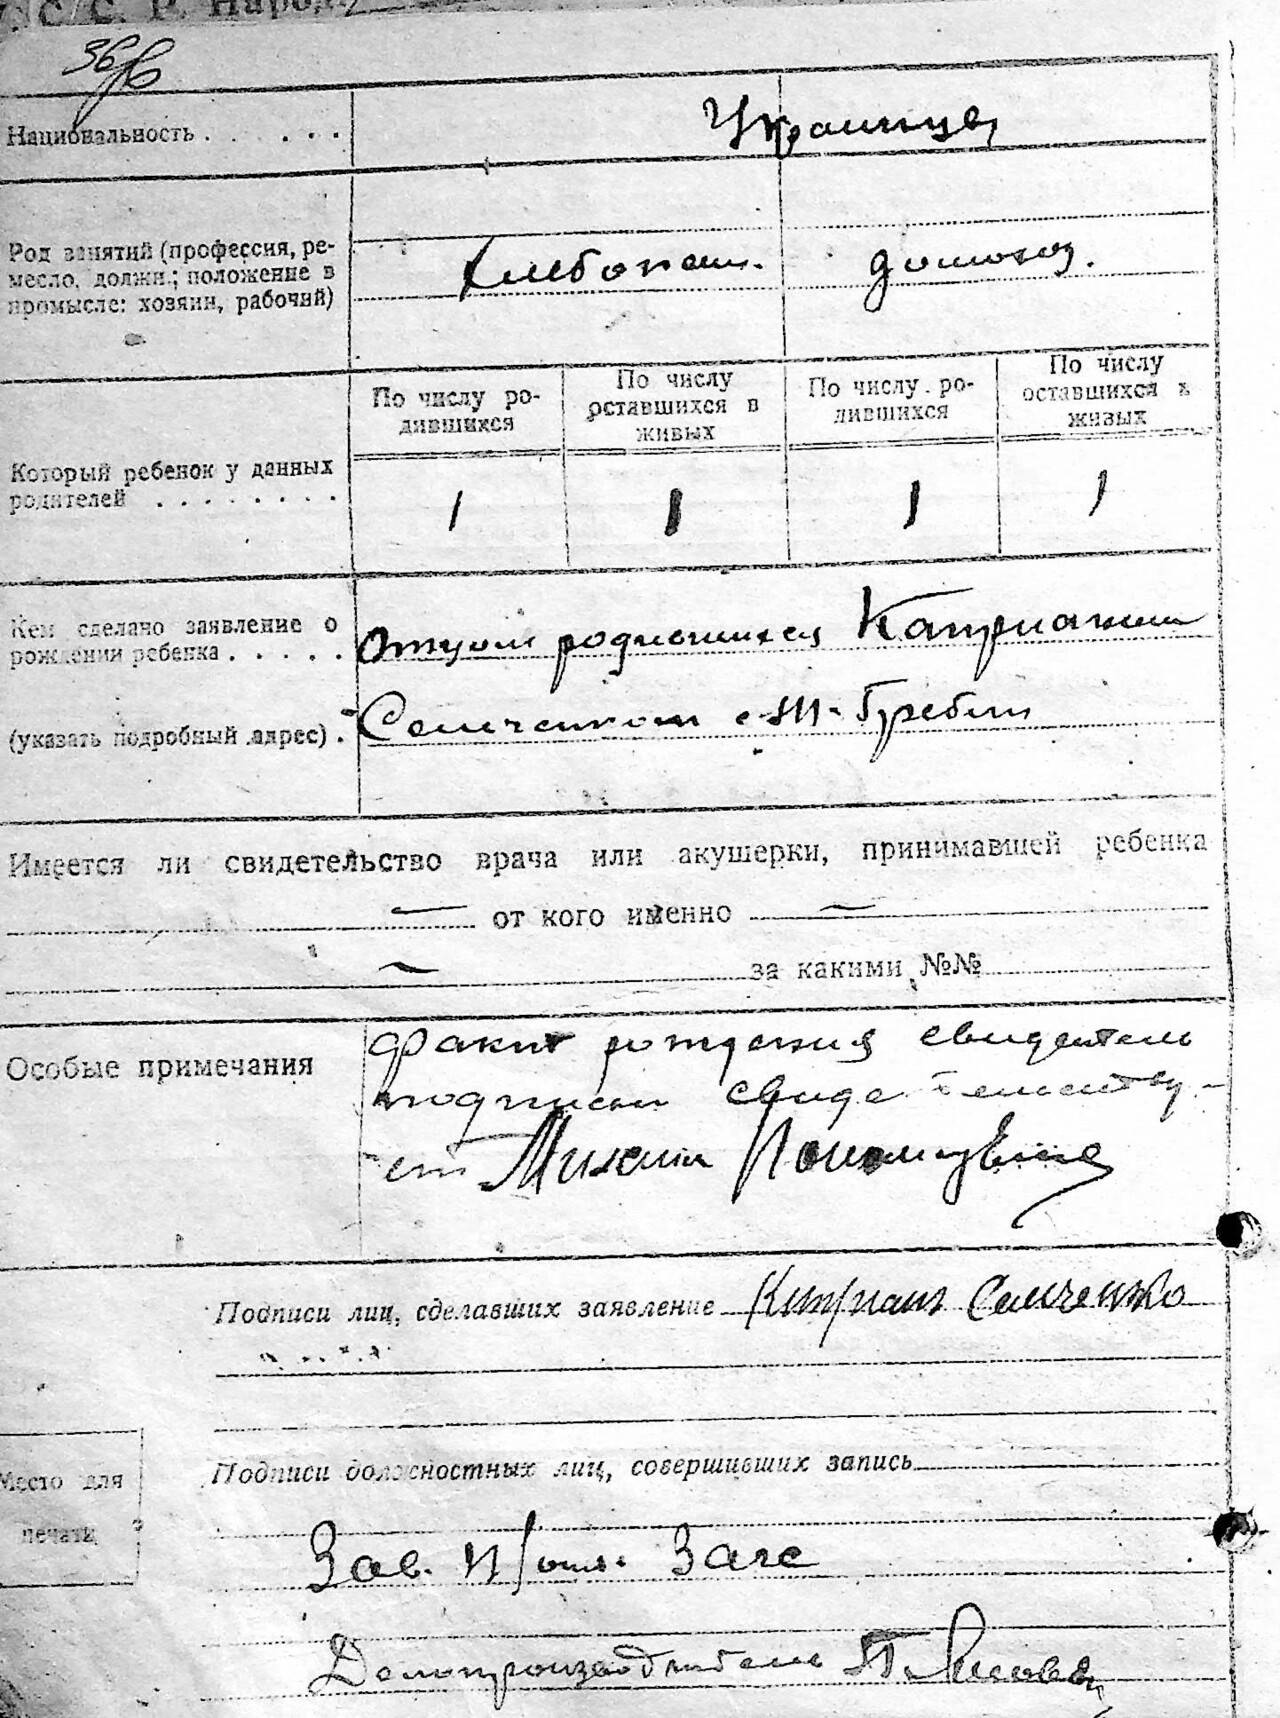 С/С. Р. Народ.
36
Национальность . . . . . . Украинцы
Род занятий (профессия, ре-
месло, должн.; положение в
промысле: хозяин, рабочий)
Хлебопаш. домохоз.
По числу ро-
дившихся
По числу
оставшихся в
живых
По числу ро-
дившихся
По числу
оставшихся в
живых
Который ребенок у данных
родителей . . . . . . . .
1 1 1 1
Кем сделано заявление о
рождении ребенка . . . . . Отцом родившихся Каприаном
(указать подробный адрес) . Семченком с-Ш-Гребли
Имеется ли свидетельство врача или акушерки, принимавшей ребенка
— от кого именно —
— за какими №№
Особые примечания
факт рождения свидетель
подписи свидетельству-
ет Михаил
Подписи лиц, сделавших заявление Киприан Семченко
Место для
печати
Подписи должностных лиц, совершивших запись
Зав. П/отд. Загс
Делопроизводитель